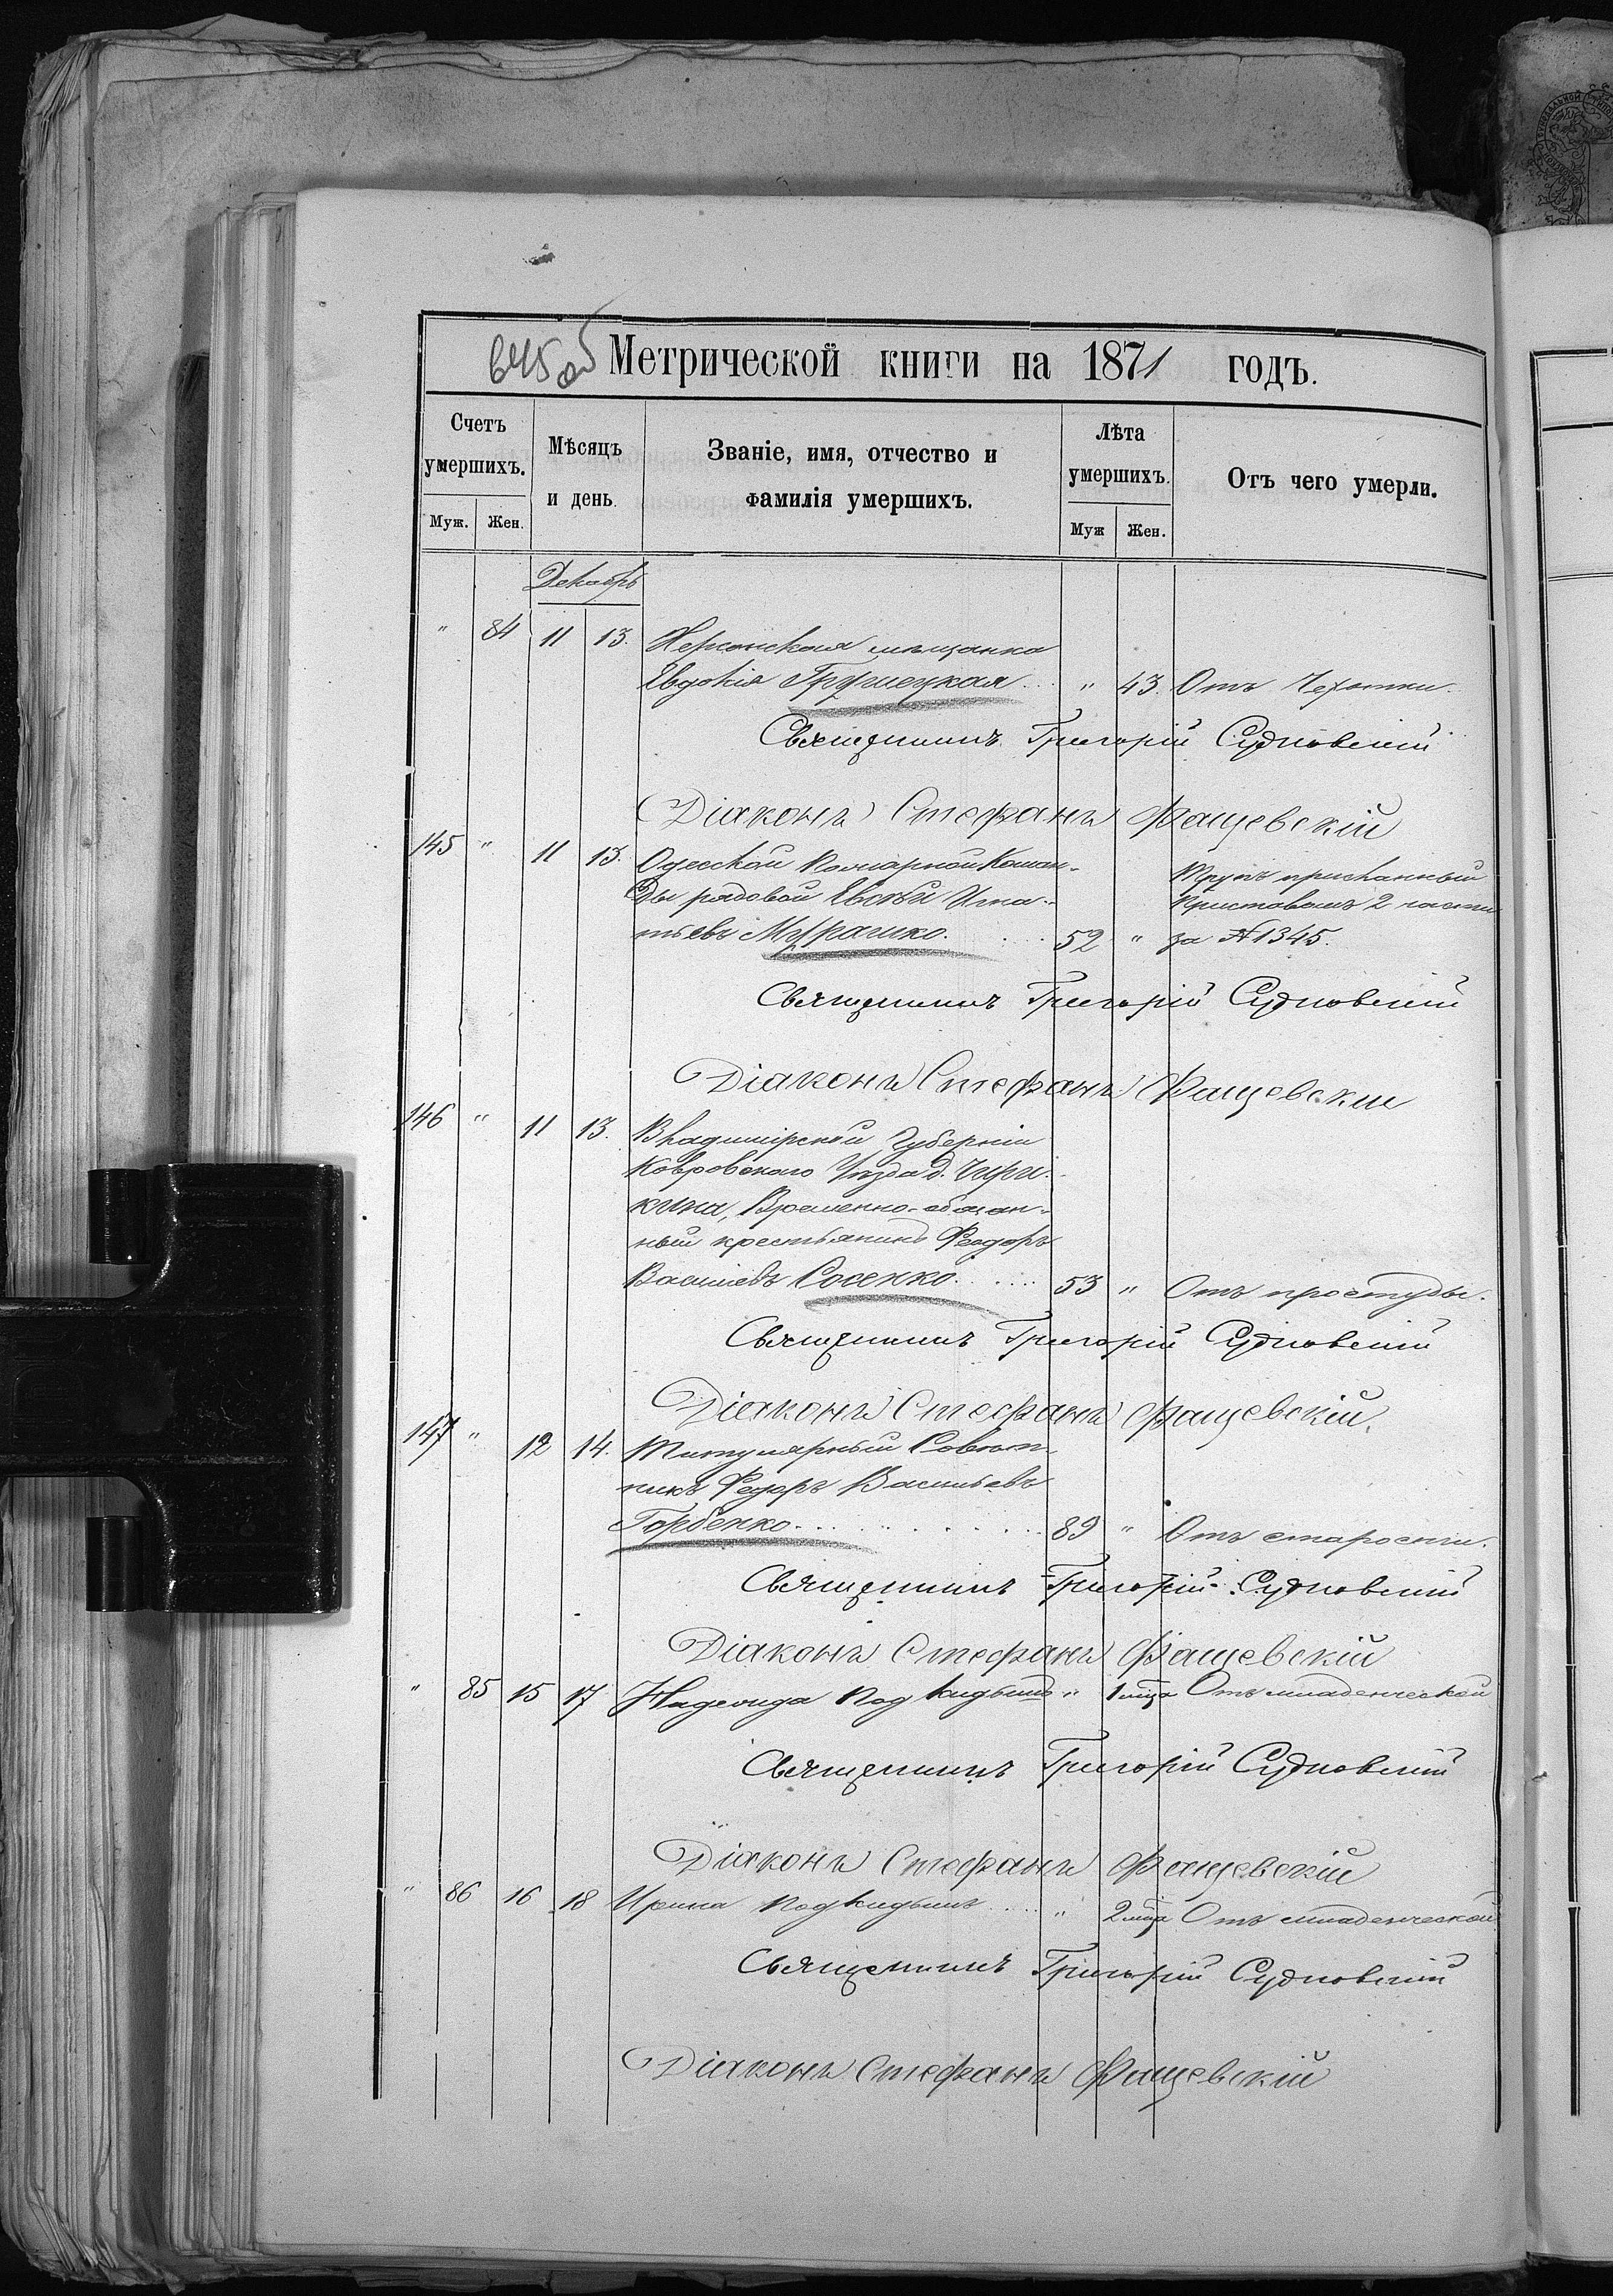 645 об Метрической книги на 1871 годъ.
Счетъ умершихъ.
Муж. Жен.
Мѣсяцъ и день.
Званіе, имя, отчество и фамилія умершихъ.
Лѣта умершихъ.
Муж Жен.
Отъ чего умерли.
Декабрь
" 84 11 13. Херсонская мѣщанка
Евдокія Грушецкая... " 43. Отъ Чахотки.
Священникъ Григорій Судковскій
Діаконъ Стефанъ Фащевскій
145 " 11 13. Одесской Пожарной Коман-
ды рядовой Евсѣй Игна-
тьевъ Мурашко. 52 "
Трупъ присланный
Приставомъ 2 части
за № 1345.
Священникъ Григорій Судковскій
Діаконъ Стефанъ Фащевскій
146 " 11 13. Владимірской Губерніи
Ковровскаго Уѣзда д.
Временно-обязан-
ный крестьянинъ Феодоръ
Васильевъ Сосенко...... 53 " Отъ простуды.
Священникъ Григорій Судковскій
Діаконъ Стефанъ Фащевскій.
147 " 12 14. Титулярный Совѣт-
никъ Федоръ Васильевъ
Горбенко........... 89 " Отъ старости.
Священникъ Григорій Судковскій
Діаконъ Стефанъ Фащевскій
" 85 15 17 Надежда Подкидышъ " 1 мца Отъ младенческой
Священникъ Григорій Судковскій
Діаконъ Стефанъ Фащевскій
" 86 16 18 Ирина Подкидышъ..... " 2 мца Отъ младенческой
Священникъ Григорій Судковскій
Діаконъ Стефанъ Фащевскій